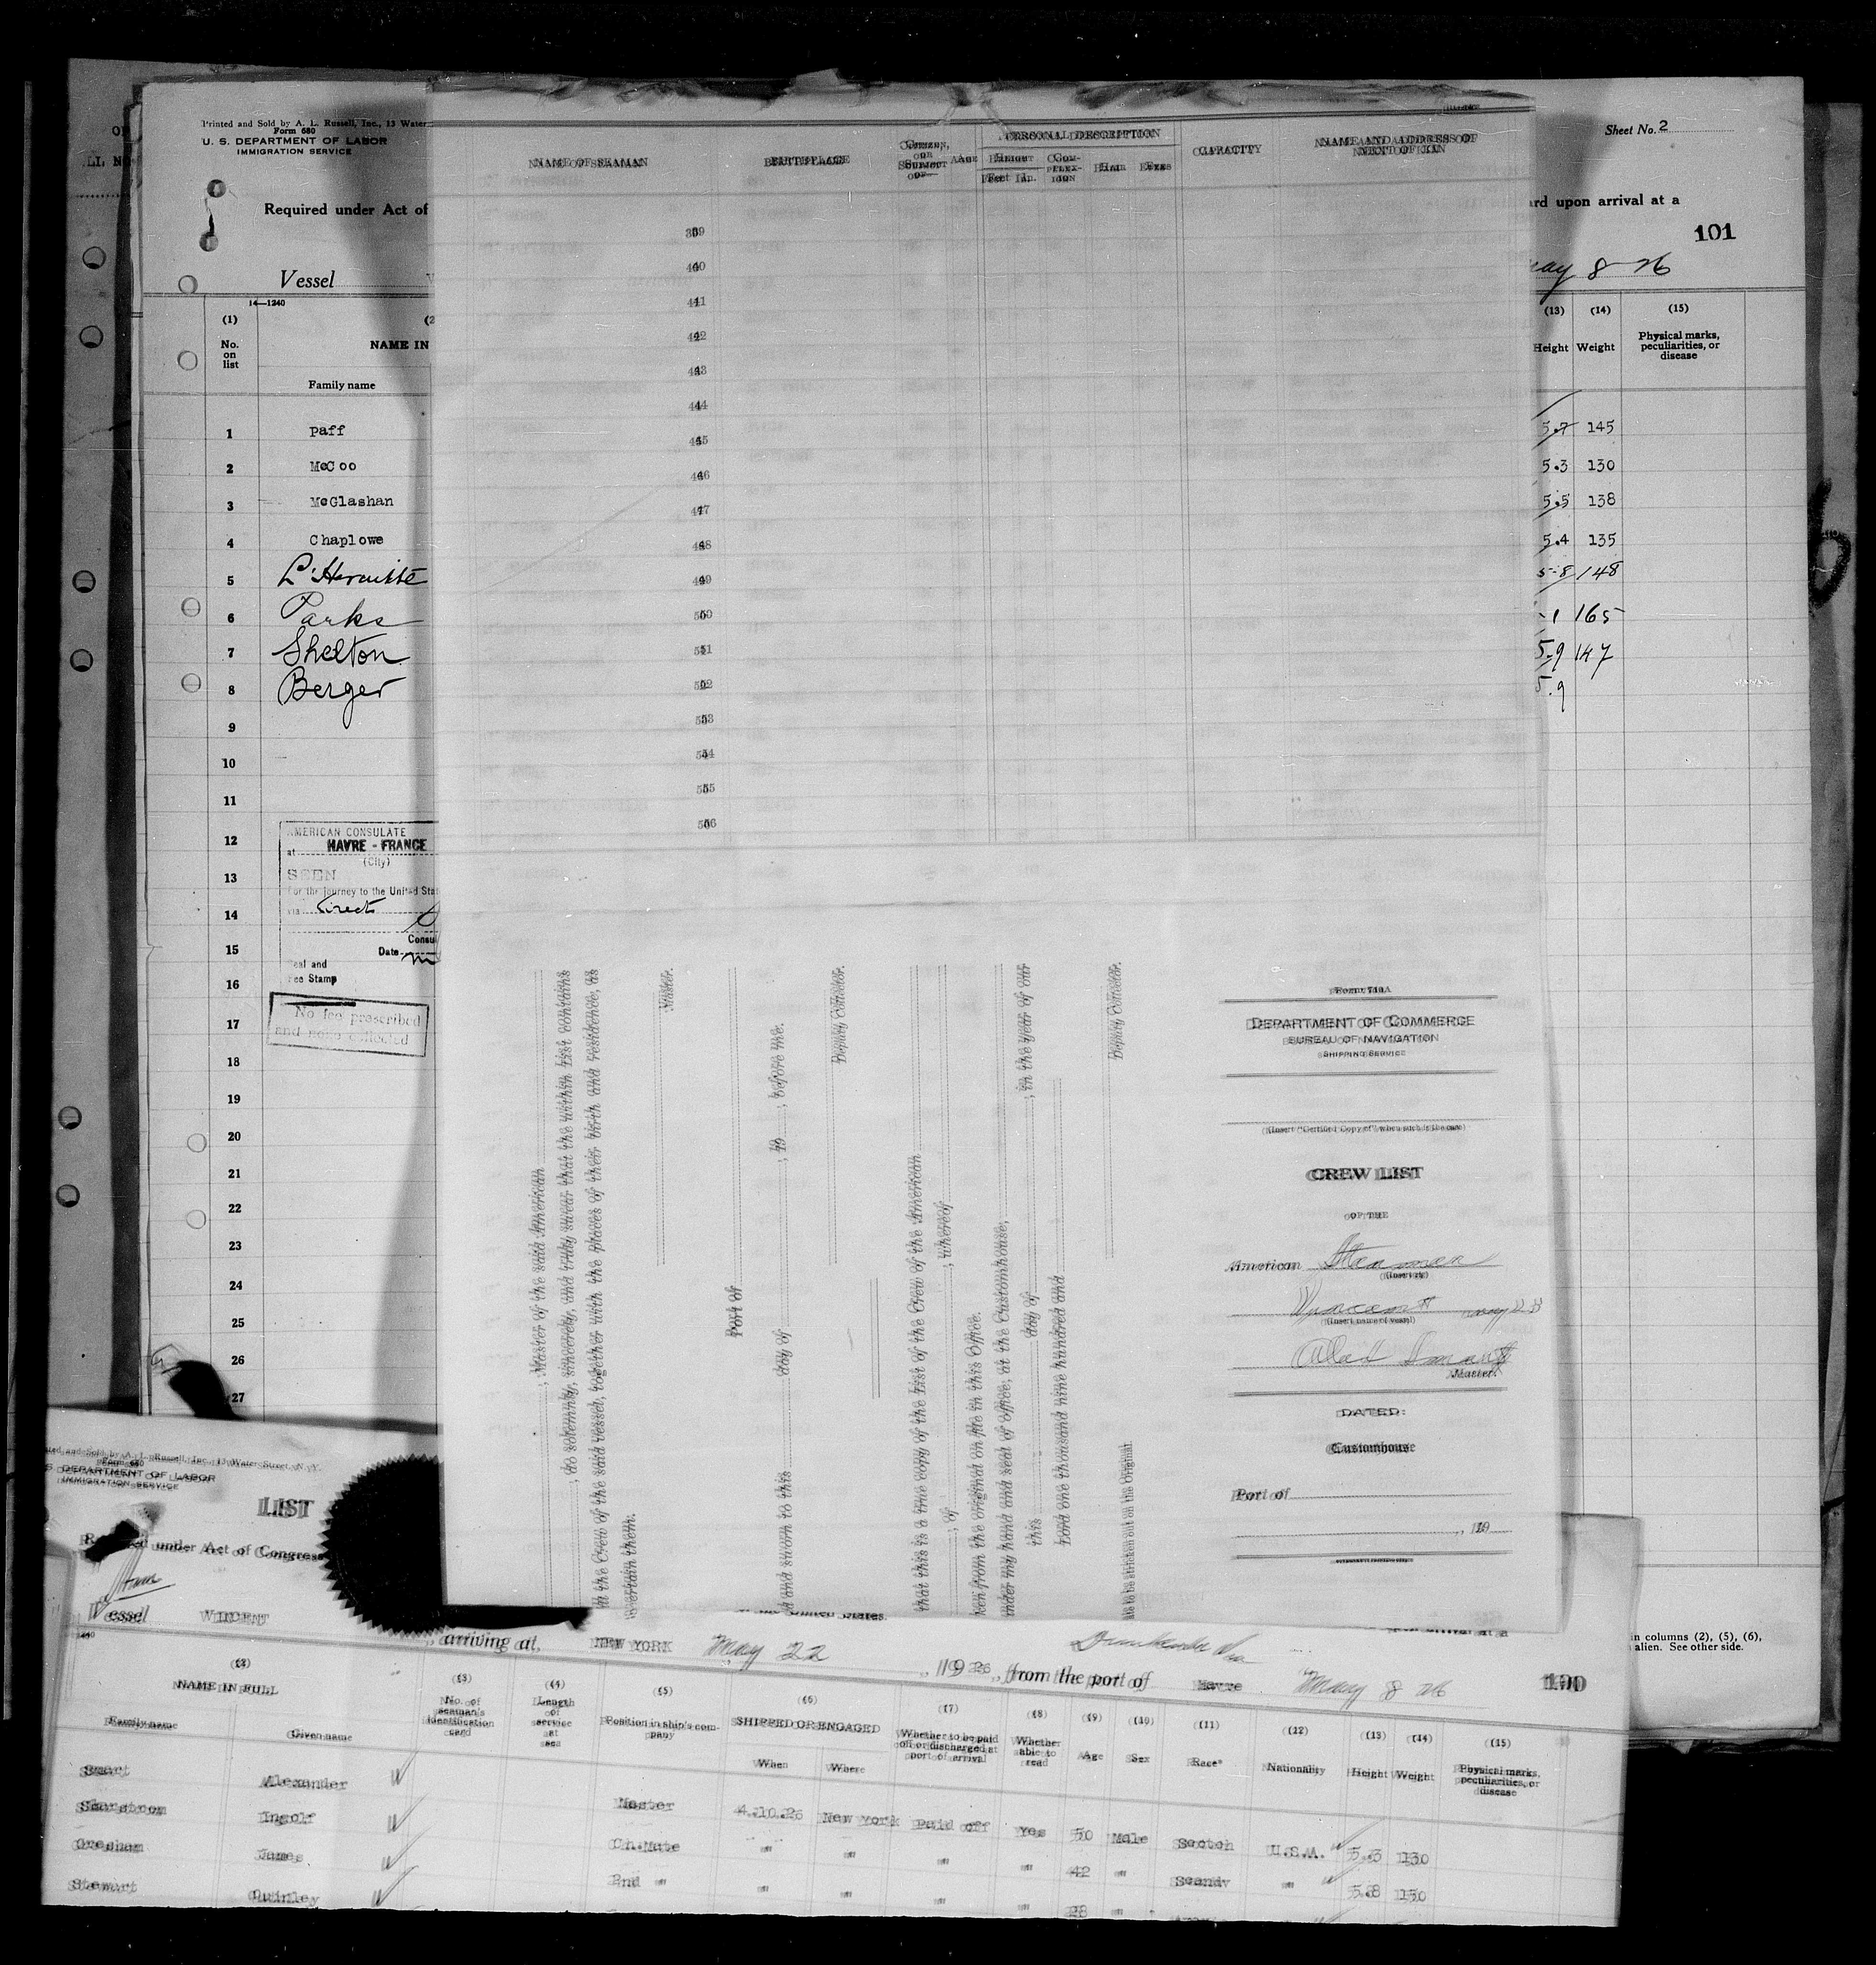 Printed and Sold by A. L. Russell, Inc., 13 Water
Form 680
U. S. DEPARTMENT OF LABOR
IMMIGRATION SERVICE
Required under Act of
Vessel
14—1240
(1)
No. on list
NAME IN
Family name
1 Paff
2 McCoo
3 McGlashan
4 Chaplowe
5
6 Parks
7 Shelton
8 Berger
9
10
11
12
13
14
15
16
17
18
19
20
21
22
23
24
25
26
27
AMERICAN CONSULATE
at HAVRE - FRANCE
(City)
SEEN
For the journey to the United Sta
via Direct
Consu
Date
Seal and
Fee Stamp
No fee prescribed
and none collected
Sheet No. 2
ard upon arrival at a
101
May 8 26
(13) (14) (15)
Height Weight Physical marks, peculiarities, or disease
5.7 145
5.3 130
5.5 138
5.4 135
5-8 148
-1 165
5-9 147
5.9
in columns (2), (5), (6),
alien. See other side.
NAME OF SEAMAN
BIRTHPLACE
CITIZEN, OR SUBJECT OF—
AGE
PERSONAL DESCRIPTION
HEIGHT
Feet In.
COMPLEXION
HAIR
EYES
CAPACITY
NAME AND ADDRESS OF NEXT OF KIN
39
40
41
42
43
44
45
46
47
48
49
50
51
52
53
54
55
56
, Master of the said American
, do solemnly, sincerely, and truly swear that the within List contains
ll the Crew of the said vessel, together with the places of their birth and residence, as
ascertain them.
Master.
Port of
d and sworn to this day of , 19 , before me.
Deputy Collector.
that this is a true copy of the List of the Crew of the American
, of , whereof
ken from the original on file in this Office.
nder my hand and seal of office, at the Customhouse,
this day of , in the year of our
Lord one thousand nine hundred and
Deputy Collector.
to be stricken out on the Original.
Form 710A
DEPARTMENT OF COMMERCE
BUREAU OF NAVIGATION
SHIPPING SERVICE
(Insert "Certified Copy of", when such is the case)
CREW LIST
OF THE
American Steamer
(Insert rig)
Vincent
(Insert name of vessel)
Master.
DATED:
Customhouse
Port of
, 19
ted and Sold by A. L. Russell, Inc., 13 Water Street, N. Y.
Form 680
S. DEPARTMENT OF LABOR
IMMIGRATION SERVICE
LIST
Required under Act of Congress
of the United States,
Vessel VINCENT , arriving at, NEW YORK May 22 , 1926 , from the port of Havre May 8 26 100
(2) NAME IN FULL
Family name Given name
(3) No. of seaman's identification card
(4) Length of service at sea
(5) Position in ship's company
(6) SHIPPED OR ENGAGED
When Where
(7) Whether to be paid off or discharged at port of arrival
(8) Whether able to read
(9) Age
(10) Sex
(11) Race*
(12) Nationality
(13) Height
(14) Weight
(15) Physical marks, peculiarities, or disease
Smart Alexander Master 4.10.26 New York Paid off Yes 50 Male Scotch U.S.A. 5.3 130
Ingolf Ch.Mate " " " " 42 " Scandv " 5.8 150
Gresham James 2nd " " " " " 28 "
Stewart Quinley